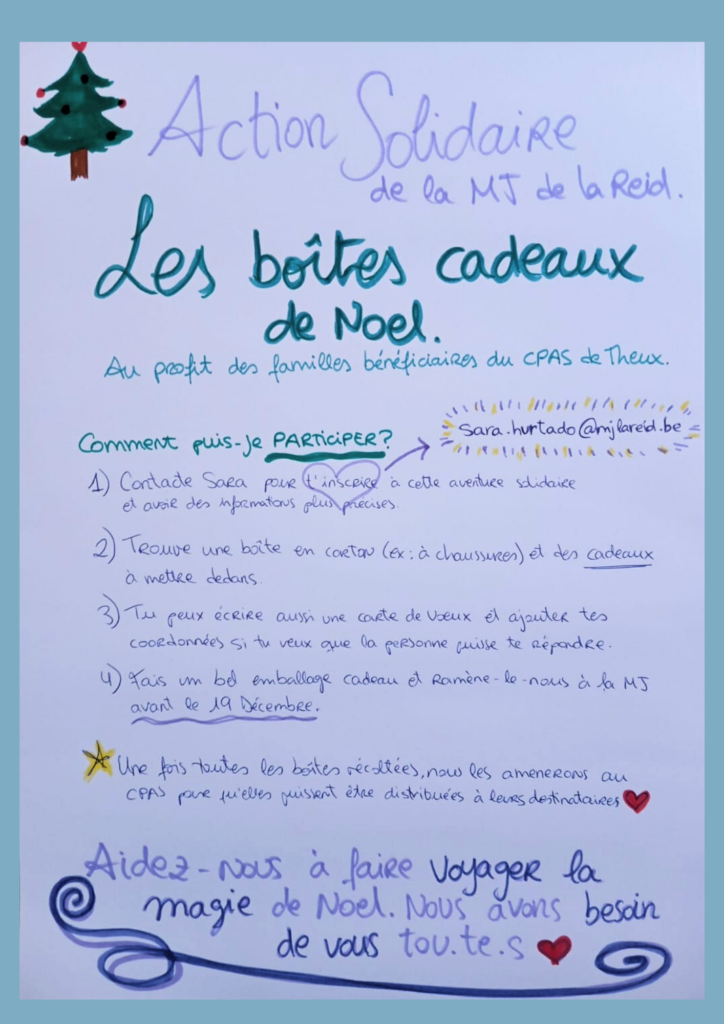 Action Solidaire
de la MJ de la Reid.
Les boîtes cadeaux
de Noel.
Au profit des familles bénéficiaires du CPAS de Theux.
Comment puis-je PARTICIPER?
sara.hurtado@mjlareid.be
1) Contacte Sara pour t'inscrire à cette aventure solidaire
et avoir des informations plus précises.
2) Trouve une boîte en carton (ex: à chaussures) et des cadeaux
à mettre dedans.
3) Tu peux écrire aussi une carte de voeux et ajouter tes
coordonnées si tu veux que la personne puisse te répondre.
4) Fais un bel emballage cadeau et ramène-le-nous à la MJ
avant le 19 Décembre.
Une fois toutes les boîtes récoltées, nous les amenerons au
CPAS pour qu'elles puissent être distribuées à leurs destinataires
Aidez-nous à faire voyager la
magie de Noel. Nous avons besoin
de vous tou.te.s